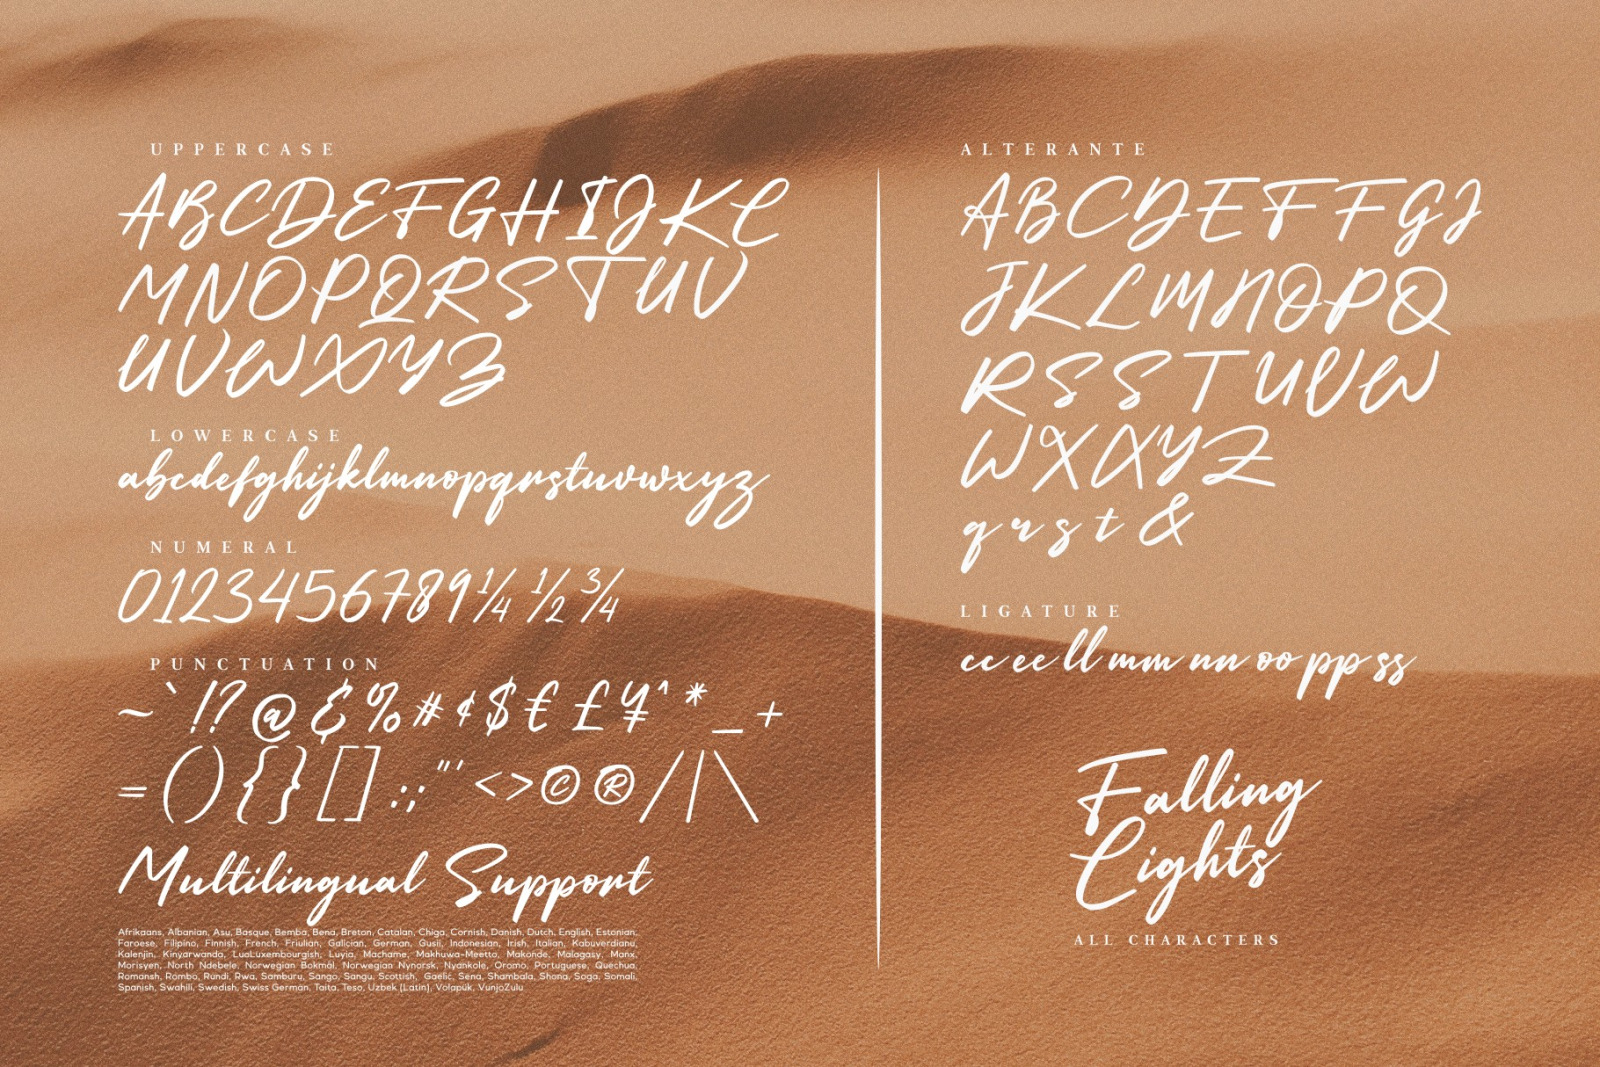 UPPERCASE
ABCDEFGHIJKL
MNOPQRSTUV
UVWXYZ
LOWERCASE
abcdefghijklmnopqrstuvwxyz
NUMERAL
0123456789¼ ½ ¾
PUNCTUATION
~ ` !? @ & % # ¢ $ € £ ¥ ^ * _ +
= () {} [] : ; " ' < > © ® / | \
Multilingual Support
Afrikaans, Albanian, Asu, Basque, Bemba, Bena, Breton, Catalan, Chiga, Cornish, Danish, Dutch, English, Estonian,
Faroese, Filipino, Finnish, French, Friulian, Galician, German, Gusii, Indonesian, Irish, Italian, Kabuverdianu,
Kalenjin, Kinyarwanda, LuoLuxembourgish, Luyia, Machame, Makhuwa-Meetto, Makonde, Malagasy, Manx,
Morisyen, North Ndebele, Norwegian Bokmål, Norwegian Nynorsk, Nyankole, Oromo, Portuguese, Quechua,
Romansh, Rombo, Rundi, Rwa, Samburu, Sango, Sangu, Scottish, Gaelic, Sena, Shambala, Shona, Soga, Somali,
Spanish, Swahili, Swedish, Swiss German, Taita, Teso, Uzbek (Latin), Volapük, VunjoZulu
ALTERANTE
ABCDEFFGJ
JKLMNOPQ
RSSTUVW
WXXYZ
q r s t &
LIGATURE
cc ee ll mm nn oo pp ss
Falling
Lights
ALL CHARACTERS